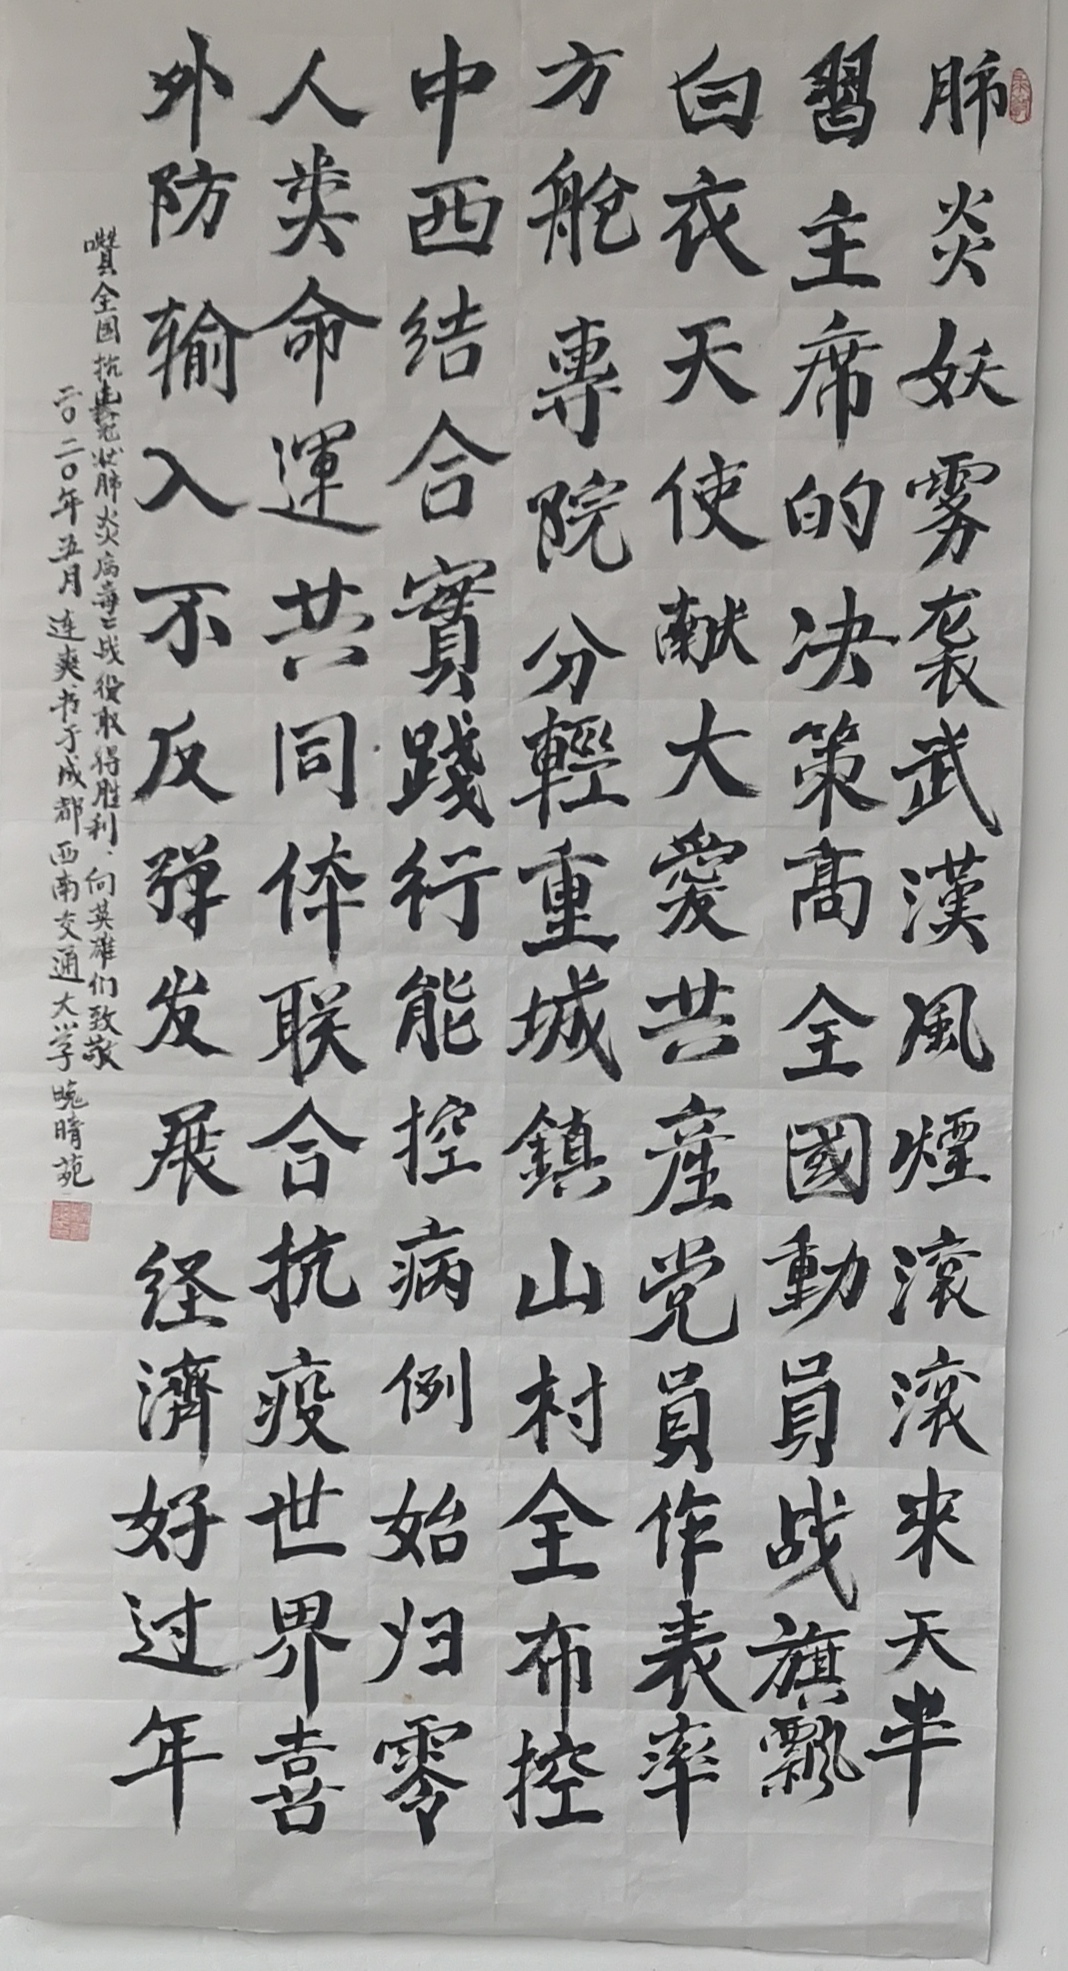 肺炎妖雾袭武漢風煙滚滚来天半
習主席的决策高全國動員战旗飄
白衣天使献大愛共産党員作表率
方舱專院分輕重城鎮山村全布控
中西结合實踐行能控病例始归零
人类命運共同体联合抗疫世界喜
外防输入不反弹发展经濟好过年
囋全国抗冠状肺炎病毒战役取得胜利、向英雄们致敬
二〇二〇年五月连爽书于成都西南交通大学晚晴苑